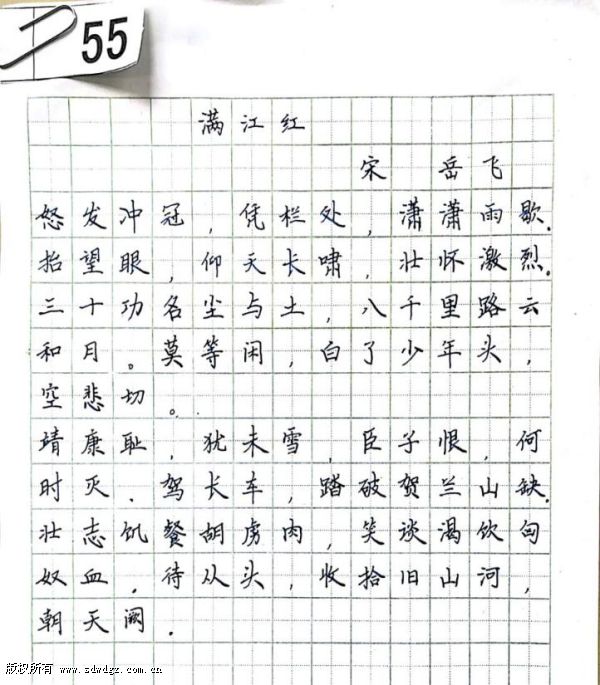 55
满江红
宋 岳飞
怒发冲冠，凭栏处，潇潇雨歇.
抬望眼，仰天长啸，壮怀激烈.
三十功名尘与土，八千里路云
和月。莫等闲，白了少年头，
空悲切。
靖康耻，犹未雪，臣子恨，何
时灭.驾长车，踏破贺兰山缺.
壮志饥餐胡虏肉，笑谈渴饮匈
奴血.待从头，收拾旧山河，
朝天阙.
版权所有 www.sdwdgz.com.cn